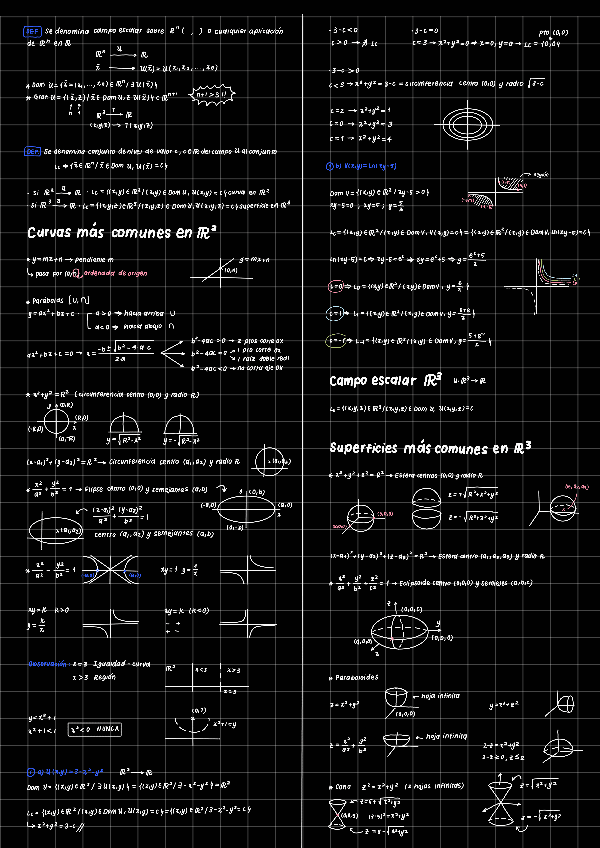 DEF Se denomina campo escalar sobre ℝⁿ ( , ) a cualquier aplicación
de ℝⁿ en ℝ
ℝⁿ —u→ ℝ
* Dom
n+1 > 3 !!
ℝ² → ℝ
DEF Se denomina conjunto de nivel de valor c, c∈ℝ del campo U al conjunto
- Si ℝ² → ℝ · Lc = {(x,y) ∈ ℝ² / (x,y) ∈ Dom U, U(x,y) = c} curva en ℝ²
- Si ℝ³ → ℝ · Lc = {(x,y,z) ∈ ℝ³ / (x,y,z) ∈ Dom U, U(x,y,z) = c} superficie en ℝ³
Curvas más comunes en ℝ²
* y = mx + n → pendiente m
y = mx + n
↳ pasa por (0,n) ordenada de origen
(0,n)
* Parábolas [∪,∩]
y = ax² + bx + c
a > 0 → hacia arriba ∪
a < 0 → hacia abajo ∩
ax² + bx + c = 0 → x = (-b ± √(b² - 4·a·c)) / 2a
b² - 4ac > 0 → 2 ptos corte ox
b² - 4ac = 0 → 1 pto corte ox
1 raíz doble real
b² - 4ac < 0 → no corta eje ox
* x² + y² = R² (circunferencia centro (0,0) y radio R)
(0,R)
(R,0)
(-R,0)
(0,-R)
y = √(R² - x²)
y = -√(R² - x²)
(x-a₁)² + (y-a₂)² = R² → Circunferencia centro (a₁,a₂) y radio R
* x²/a² + y²/b² = 1 → Elipse centro (0,0) y semejantes (a,b)
(0,b)
(-a,0)
(a,0)
(0,-b)
(x-a₁)²/a² + (y-a₂)²/b² = 1
(a₁,a₂)
centro (a₁,a₂) y semejantes (a,b)
* x²/a² - y²/b² = 1
xy = 1 y = 1/x
xy = K K > 0
y = K/x
xy = K (K < 0)
Observación: x = 3 Igualdad - curva
x > 3 Región
ℝ²
x < 3
x > 3
x = 3
y = x² + 1
x² + 1 < 1
x² < 0 NUNCA
x² + 1 = y
① a) U(x,y) = 3 - x² - y² ℝ² → ℝ
Dom U = {(x,y) ∈ ℝ² / ∃ U(x,y)} = {(x,y) ∈ ℝ² / 3 - x² - y²} = ℝ²
Lc = {(x,y) ∈ ℝ² / (x,y) ∈ Dom U, U(x,y) = c} = {(x,y) ∈ ℝ² / 3 - x² - y² = c}
↳ x² + y² = 3 - c //
· 3 - c < 0
c > 0 → ∄ Lc
· 3 - c = 0
c = 3 → x² + y² = 0 → x = 0, y = 0 → Lc = {0,0}
pto (0,0)
· 3 - c > 0
c < 3 → x² + y² = 3 - c = circunferencia centro (0,0) y radio √(3-c)
c = 2 → x² + y² = 1
c = 0 → x² + y² = 3
c = 1 → x² + y² = 2
① b) V(x,y) = Ln(xy - 5)
Dom V = {(x,y) ∈ ℝ² / xy - 5 > 0}
xy - 5 = 0 ; xy = 5 ; y = 5/x
Lc = {(x,y) ∈ ℝ² / (x,y) ∈ Dom V, V(x,y) = c} = {(x,y) ∈ ℝ² / (x,y) ∈ Dom V, Ln(xy - 5) = c}
Ln(xy - 5) = c → xy - 5 = eᶜ → xy = eᶜ + 5 → y = (eᶜ + 5)/x
c = 0 → L₀ = {(x,y) ∈ ℝ² / (x,y) ∈ Dom V, y = 6/x}
c = 1 → L₁ = {(x,y) ∈ ℝ² / (x,y) ∈ Dom V, y = (5 + e)/x}
c = -1 → L₋₁ = {(x,y) ∈ ℝ² / (x,y) ∈ Dom V, y = (5 + e⁻¹)/x}
Campo escalar ℝ³ U: ℝ³ → ℝ
Lc = {(x,y,z) ∈ ℝ³ / (x,y,z) ∈ Dom U, U(x,y,z) = c
Superficies más comunes en ℝ³
* x² + y² + z² = R² → Esfera centro (0,0) y radio R
z = +√(R² - x² - y²)
z = -√(R² - x² - y²)
(x-a₁)² + (y-a₂)² + (z-a₃)² = R² → Esfera centro (a₁,a₂,a₃) y radio R
* x²/a² + y²/b² + z²/c² = 1 → Elipsoide centro (0,0,0) y semiejes (a,b,c)
z
(0,0,c)
y
(0,b,0)
(a,0,0)
x
* Paraboloides
z = x² + y²
← hoja infinita
(0,0,0)
y = x² + z²
z = x²/a² + y²/b²
← hoja infinita
2 - z = x² + y²
2 - z ≥ 0, z ≤ 2
* Cono z² = x² + y² (2 hojas infinitas)
z = √(x² + y²)
z = -√(x² + y²)